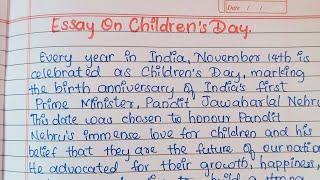 Date : / /
Essay On Children's Day.
Every year in India, November 14th is
celebrated as Children's Day, marking
the birth anniversary of India's first
Prime Minister, Pandit Jawaharlal Nehru
This date was chosen to honour Pandit
Nehru's immense love for children and his
belief that they are the future of our nation
He advocated for their growth, happiness,
build a strong